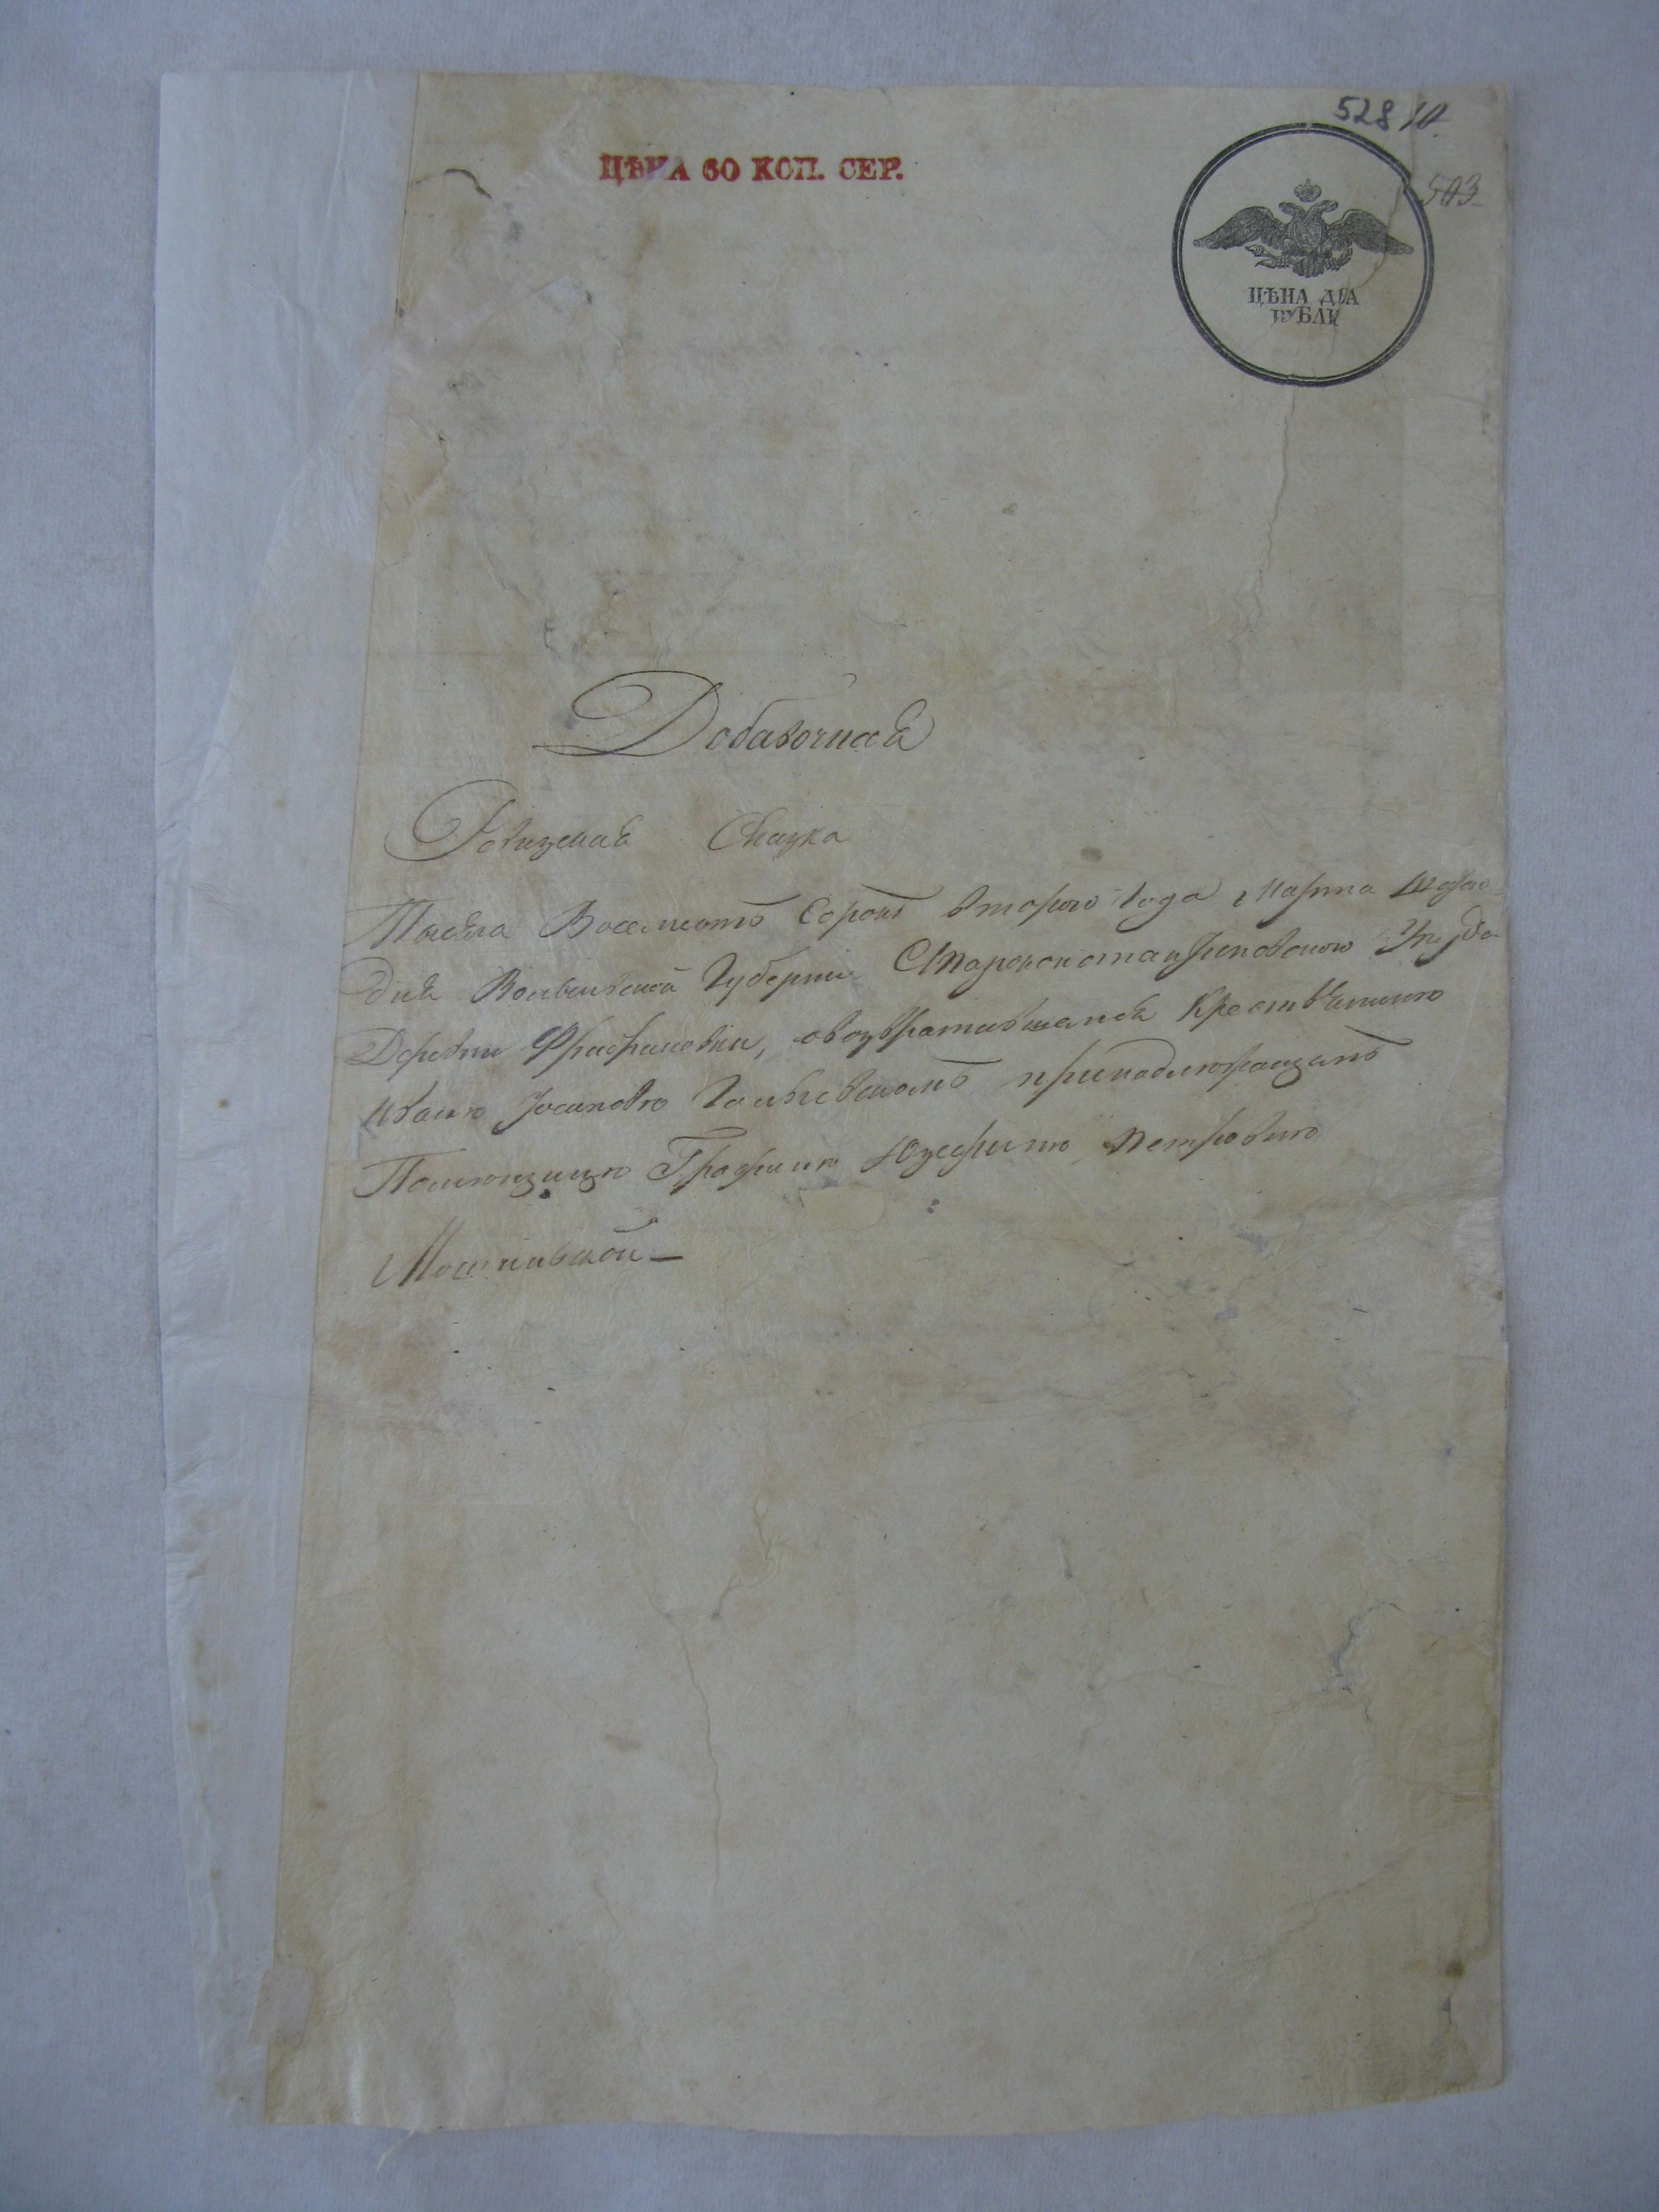 528 10.
503
ЦѢНА 60 КОП. СЕР.
ЦѢНА ДВА
РУБЛИ
Добавочная
Ревизская Сказка
Тысяча Восемсотъ Сорокъ втораго года Марта
дня Волынской Губерніи Староконстантиновского Уезда
Деревни о возвратившемся Крестьянине
принадлежащемъ
Помещице Графине Юзефине Петровне
Мошинской